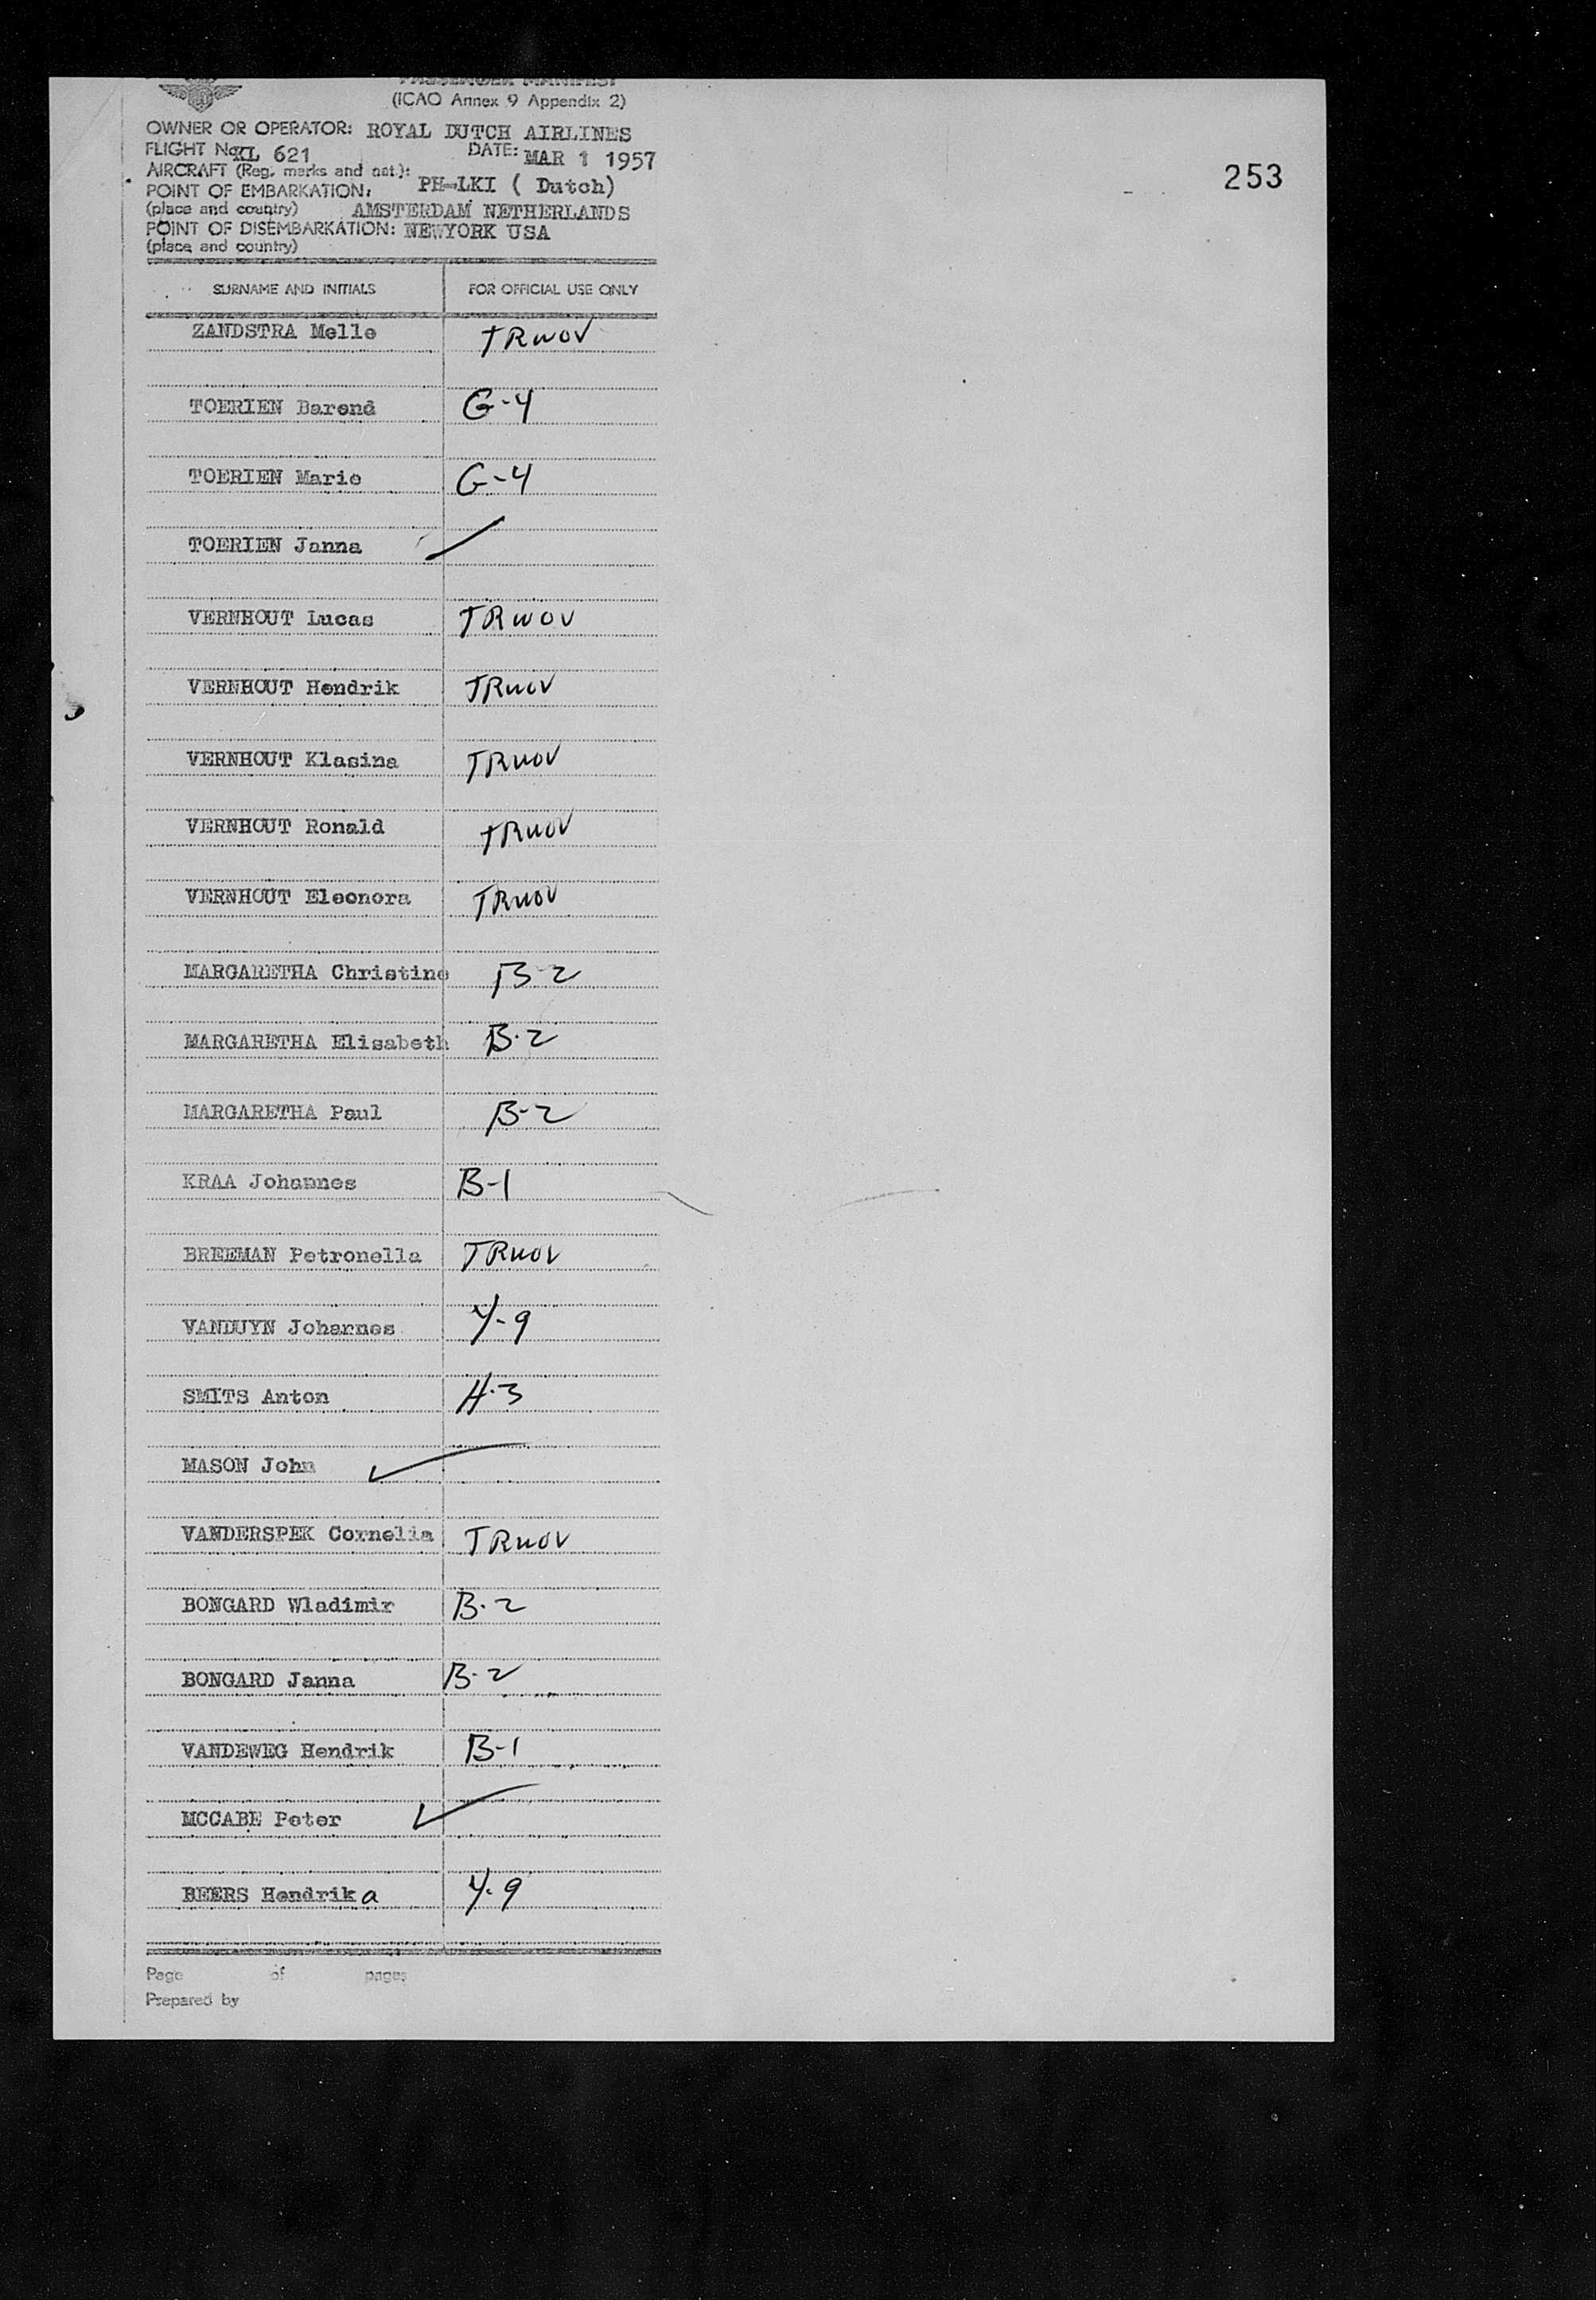 PASSENGER MANIFEST
(ICAO Annex 9 Appendix 2)
OWNER OR OPERATOR: ROYAL DUTCH AIRLINES
FLIGHT No. KL 621 DATE: MAR 1 1957
253
AIRCRAFT (Reg. marks and nat.): PH-LKI ( Dutch)
POINT OF EMBARKATION:
(place and country) AMSTERDAM NETHERLANDS
POINT OF DISEMBARKATION: NEWYORK USA
(place and country)
SURNAME AND INITIALS FOR OFFICIAL USE ONLY
ZANDSTRA Melle TRWOV
TOERIEN Barend G-4
TOERIEN Marie G-4
TOERIEN Janna
VERNHOUT Lucas TRWOV
VERNHOUT Hendrik TRWOV
VERNHOUT Klasina TRWOV
VERNHOUT Ronald TRWOV
VERNHOUT Eleonora TRWOV
MARGARETHA Christine B-2
MARGARETHA Elisabeth B-2
MARGARETHA Paul B-2
KRAA Johannes B-1
BREEMAN Petronella TRWOV
VANDUYN Johannes Y-9
SMITS Anton H-3
MASON John
VANDERSPEK Cornelia TRWOV
BONGARD Wladimir B-2
BONGARD Janna B-2
VANDEWEG Hendrik B-1
MCCABE Peter
BEERS Hendrika Y-9
Page of pages
Prepared by